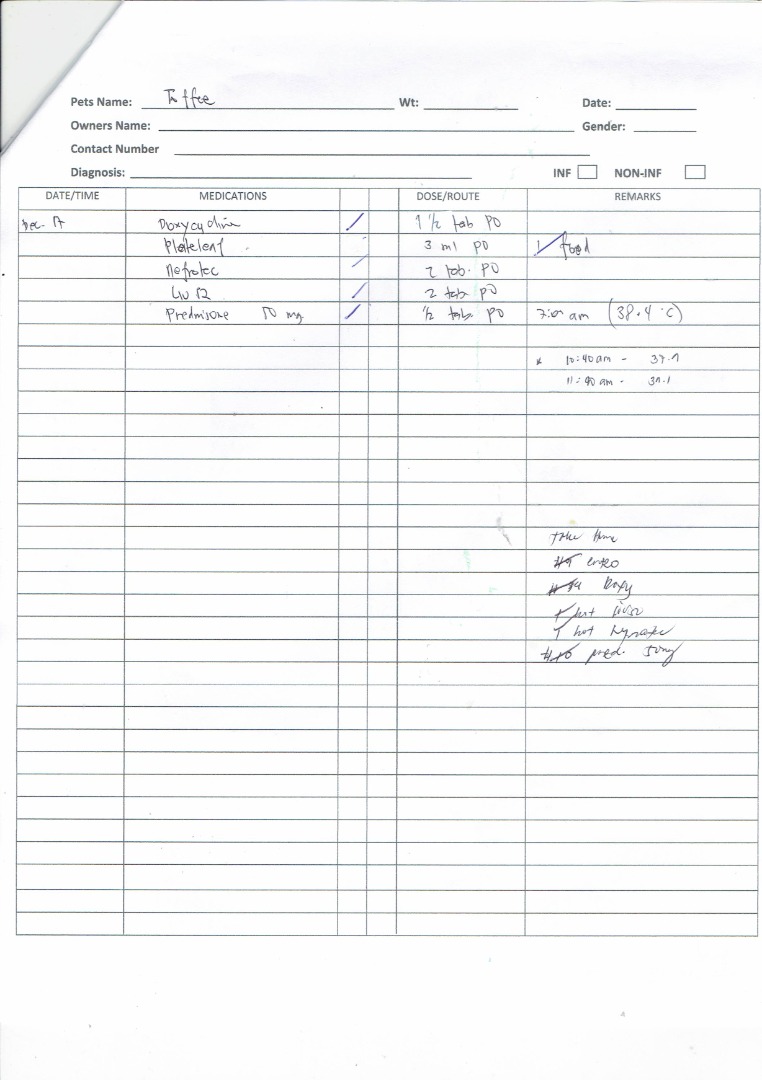 Pets Name: Toffee Wt: Date:
Owners Name: Gender:
Contact Number
Diagnosis: INF NON-INF
DATE/TIME MEDICATIONS DOSE/ROUTE REMARKS
Dec. 17 Doxycycline 1 1/2 tab PO
3 ml PO food
Nefrotec 2 tab. PO
Liv 52 2 tab PO
Prednisone 50 mg 1/2 tab PO 7:00 am (38.4 °C)
* 10:40 am -
11:40 am -
take home
enro
Doxy
1 bot
1 bot
pred. 50mg